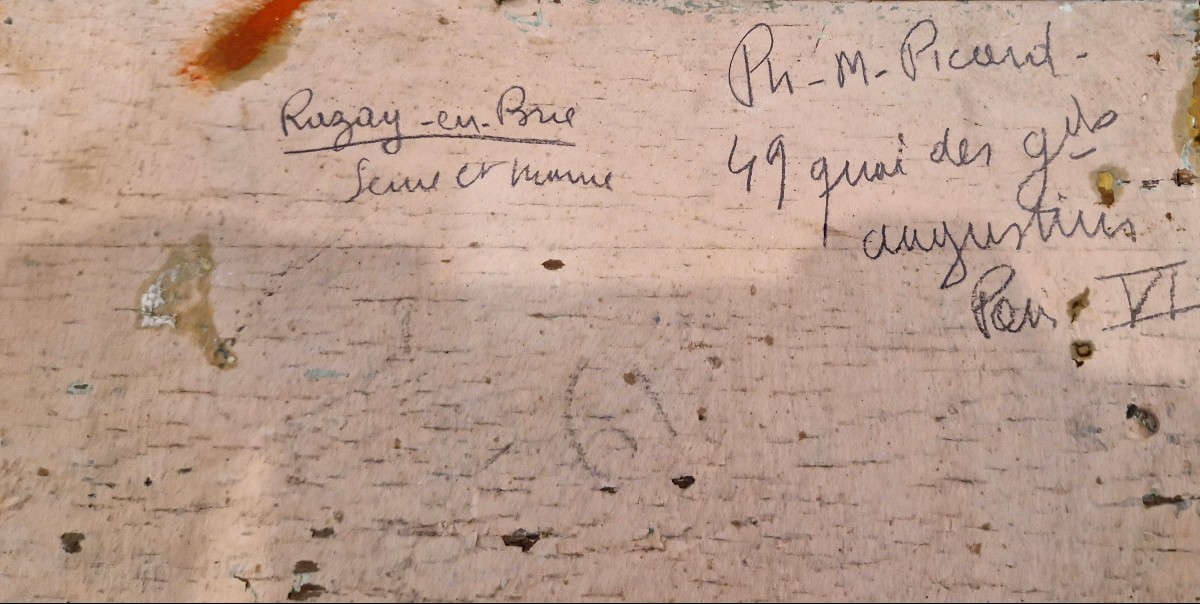 Rozay-en-Brie
Seine et Marne
Ph-M-Picard-
49 quai des gds
augustins
Paris VI
61